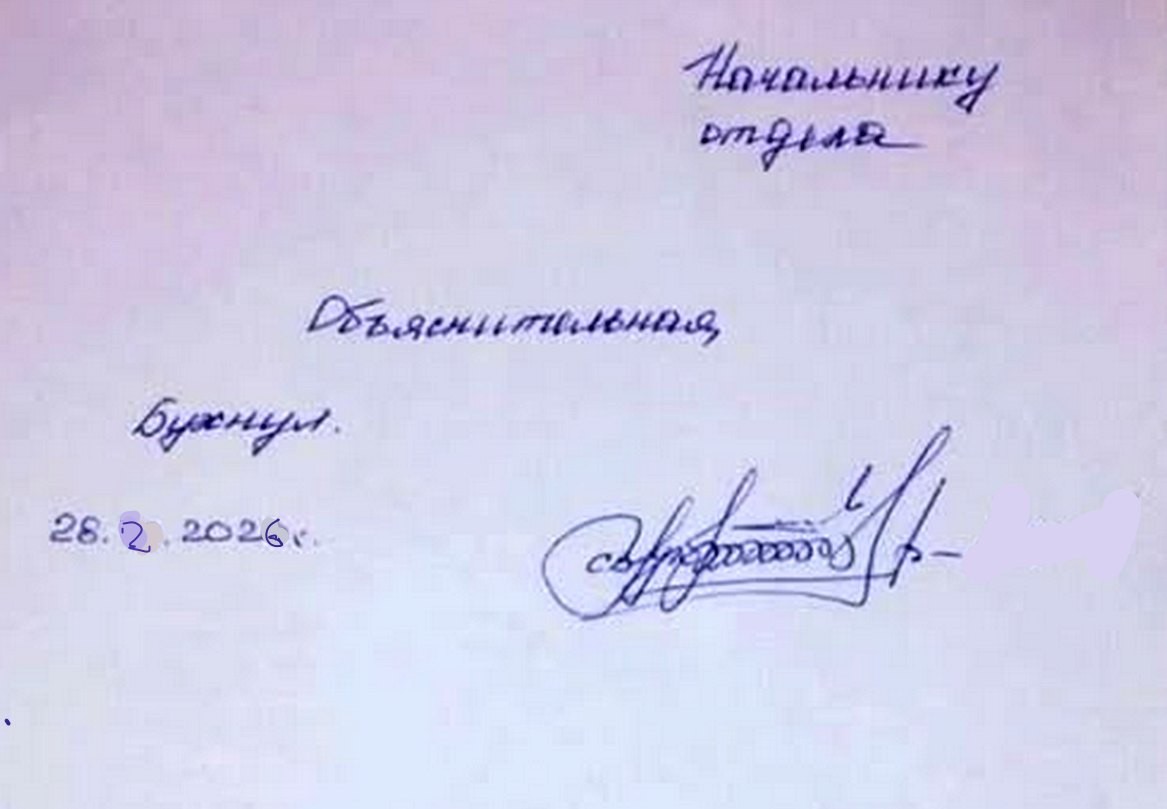 Начальнику
отдела
Объяснительная
Бухнул.
28.2.2026г.